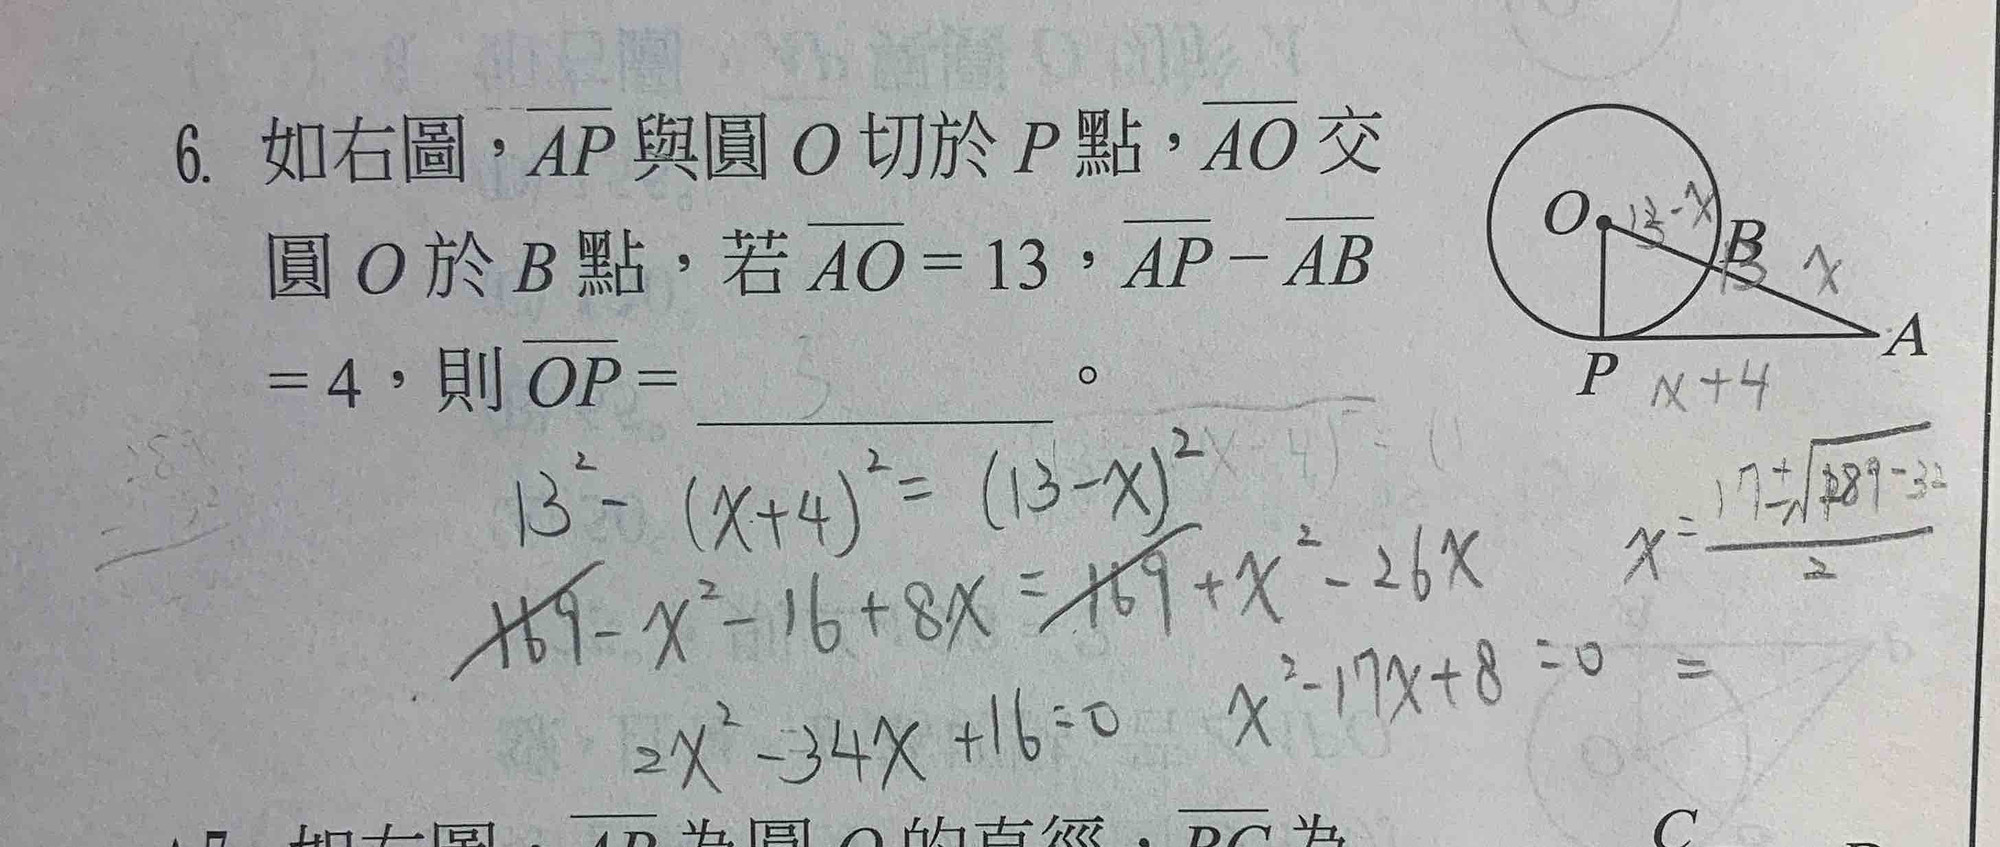 6. 如右圖，AP 與圓 O 切於 P 點，AO 交
圓 O 於 B 點，若 AO = 13，AP − AB
= 4，則 OP = 5 。
O
13-x
B
13
x
A
P
x+4
13² - (x+4)² = (13-x)²
169 - x² - 16 + 8x = 169 + x² - 26x
2x² - 34x + 16 = 0
x² - 17x + 8 = 0
x = 17 ± √289-32 / 2
=
7. 如右圖，AB 為圓 O 的直徑，BC 為
C